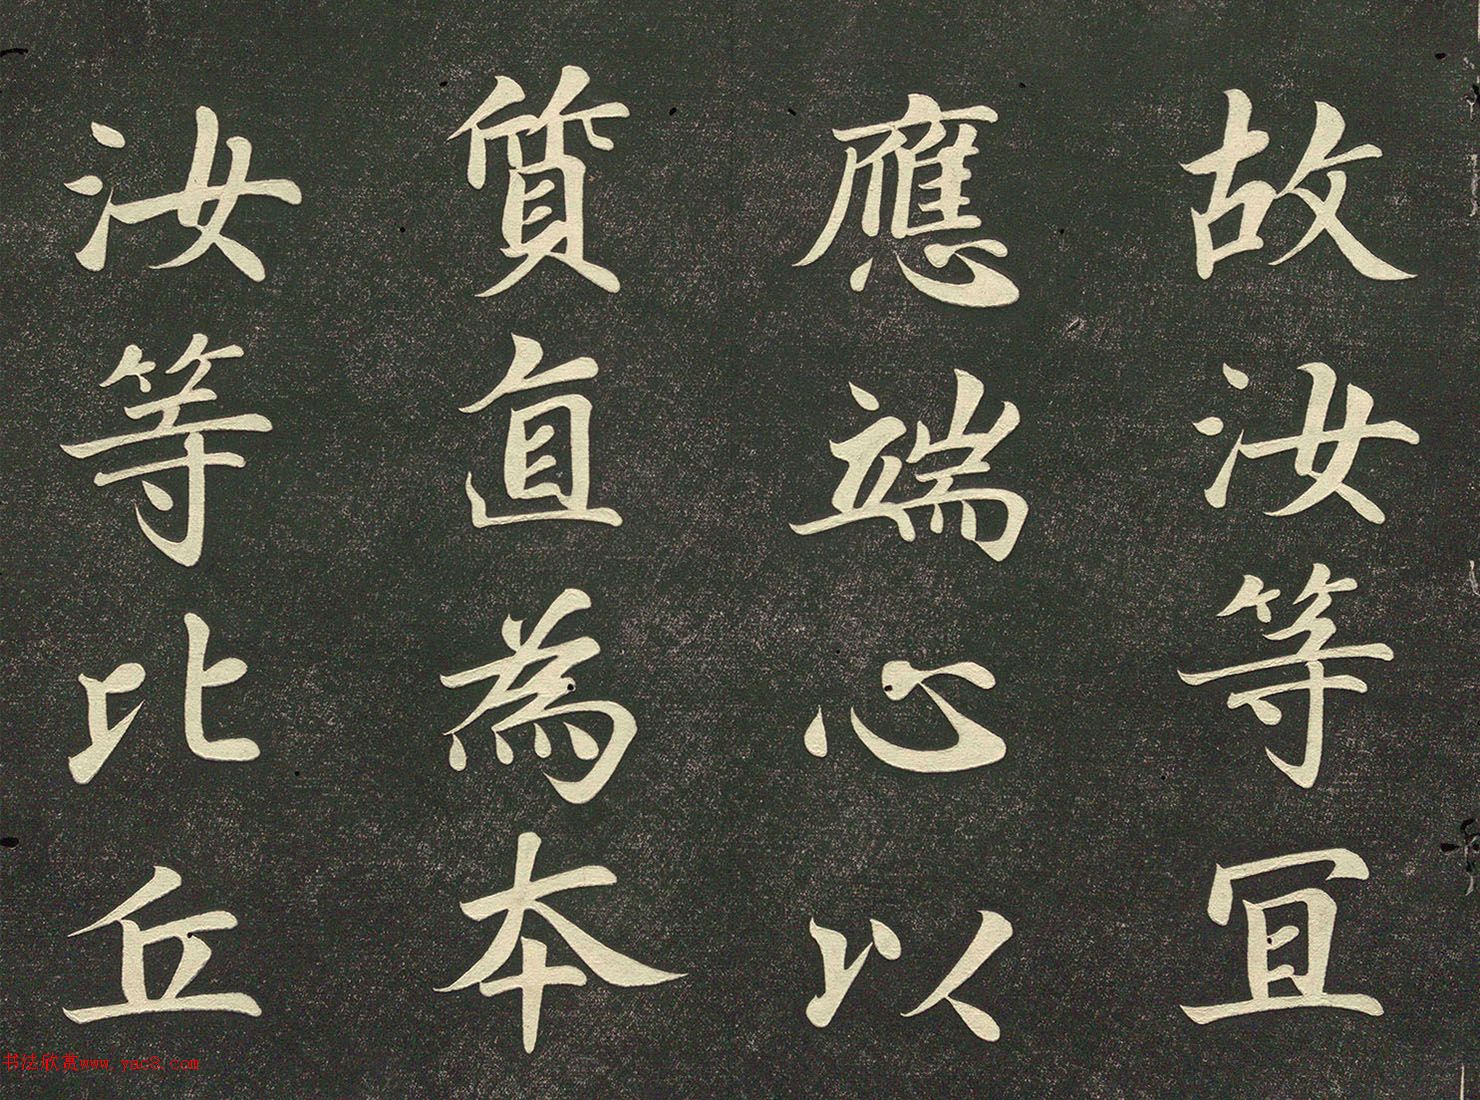 故汝等冝
應端心以
質直為本
汝等比丘
书法欣赏www.yac8.com